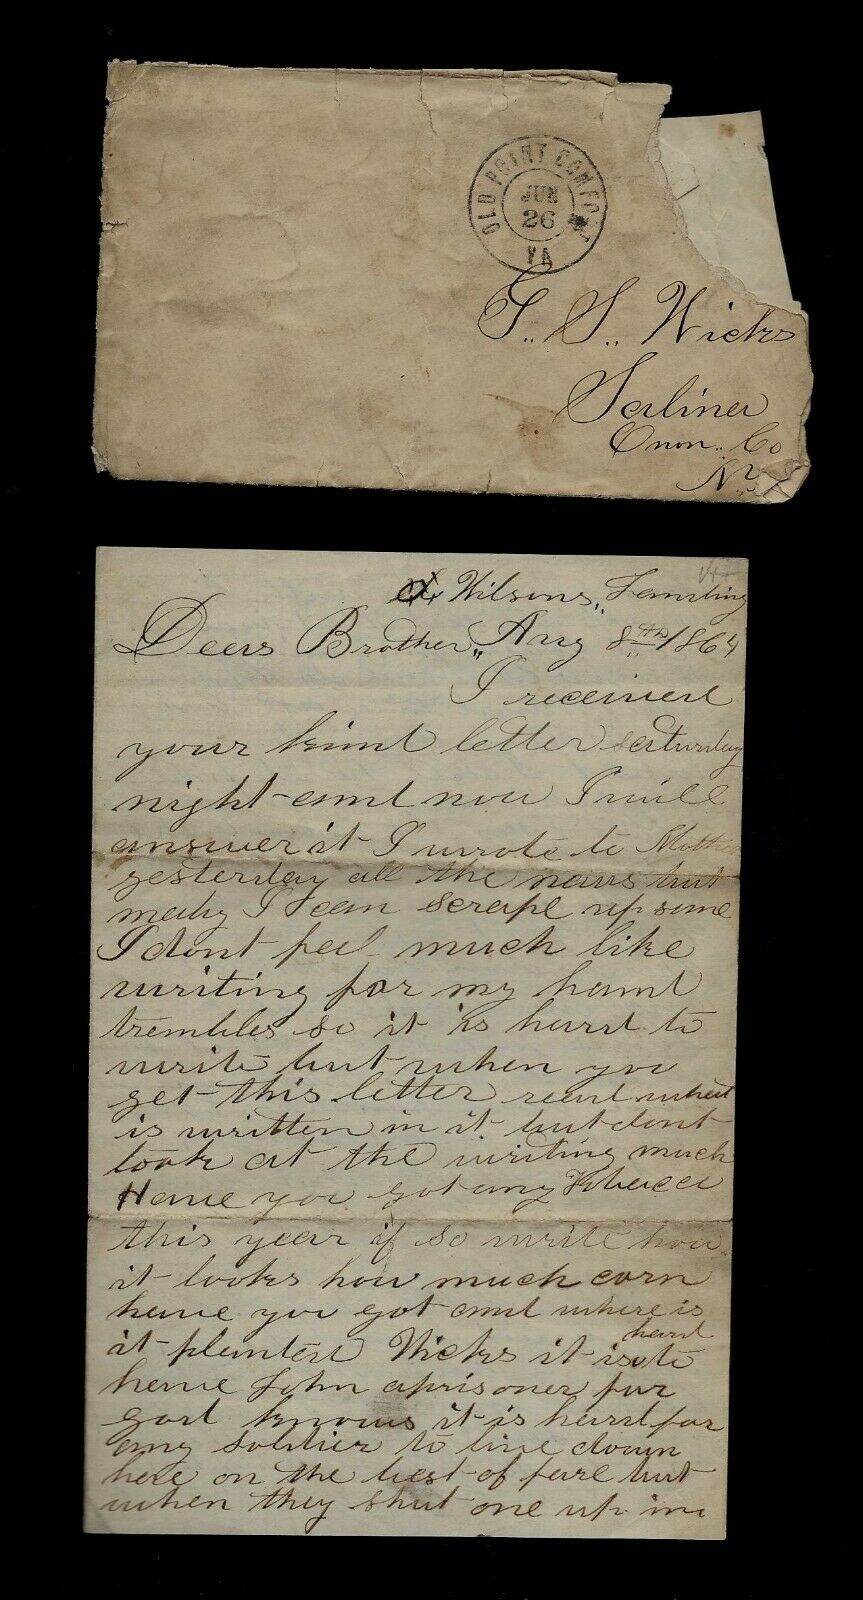 OLD POINT COMFORT
JUN
26
VA
G. S. Wicks
Salina
Onon. Co
N.Y.
Wilsons,, Landing
Dear Brother,, Aug 8th 1864
I received
your kind letter saturday
night and now I will
answer it I wrote to Mother
yesterday all the news but
maby I can scrape up some
I dont feel much like
writing for my hand
trembles so it is hard to
write but when you
get this letter read what
is written in it but dont
look at the writing much
Have you got any Tobacco
this year if so write how
it looks how much corn
have you got and where is
it planted Wicks it is hard to
have John aprisoner for
god knows it is hard for
any soldier to live down
here on the best of fare but
when they shut one up in